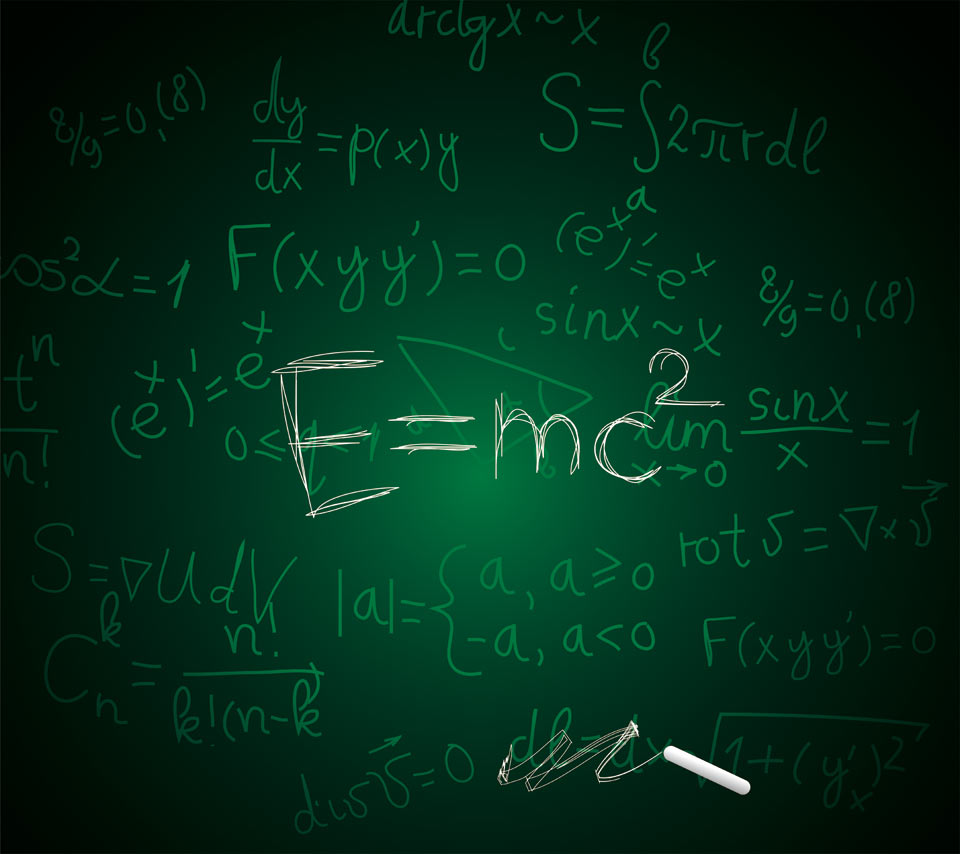 arctgx ~ x
8/9=0,(8)
dy/dx = p(x)y
S=∫ₐᵇ2πrdl
cos²α=1
F(xyy')=0
(eˣ)'=eˣ
8/9=0,(8)
sinx ~ x
tⁿ/n!
(eˣ)'=eˣ
E=mc²
lim x→0 sinx/x =1
0≤
S=∇UdV
|a|={a, a≥0
-a, a<0
rot v = ∇×v⃗
Cₙᵏ = n!/k!(n-k
F(xyy')=0
div v⃗=0
dl=dx √1+(y'ₓ)²